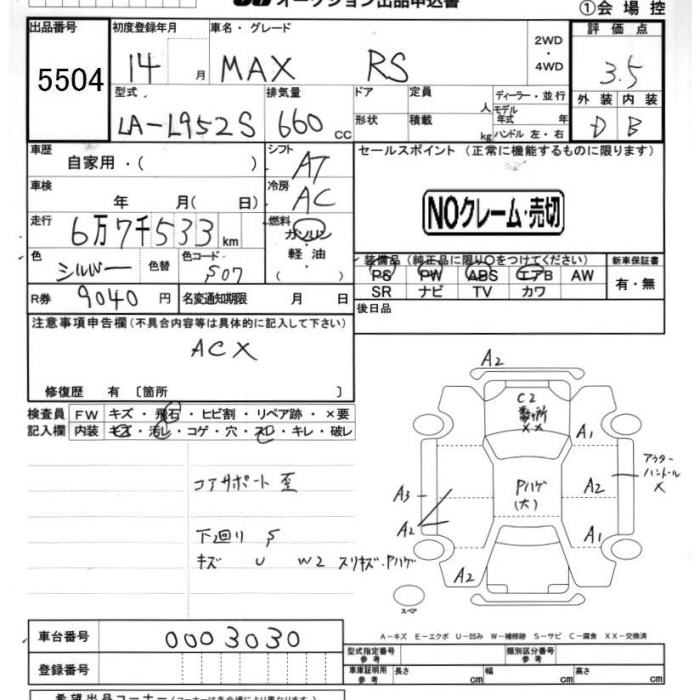 オークション出品申込書
①会場控
出品番号 初度登録年月 車名・グレード 評価点
5504 14 月 MAX RS 2WD ・ 4WD 3.5
型式 排気量 ドア 定員 人 ディーラー・並行 外装 内装
LA-L952S 660 cc 形状 積載 kg モデル年式 年 ハンドル 左・右 D B
車歴 自家用・( ) シフト AT セールスポイント (正常に機能するものに限ります)
車検 年 月( 日) 冷房 AC
NOクレーム・売切
走行 6万7千533 km 燃料 ガソリン
色 シルバー 色替 色コード S07 軽油 ( )
装備品(純正品に限り○をつけてください) 新車保証書
PS PW ABS エアB AW 有・無
SR ナビ TV カワ
R券 9040 円 名変通知期限 月 日 後日品
注意事項申告欄(不具合内容等は具体的に記入して下さい)
ACX
修復歴 有 〔箇所 〕
検査員 FW キズ・飛石・ヒビ割・リペア跡・×要
記入欄 内装 キズ・汚レ・コゲ・穴・スレ・キレ・破レ
A2
C2
XX
A1
アウターハンドル X
コアサポート 歪
A3 Pハゲ (大) A2
A2
下廻り S A1
キズ U W2 スリキズ・Pハゲ
A2
スペア
A−キズ E−エクボ U−凹み W−補修跡 S−サビ C−腐食 XX−交換済
車台番号 0003030
型式指定番号 参考 類別区分番号 参考
登録番号 車庫証明用 参考 長さ cm 幅 cm 高さ cm
希望出品コーナー